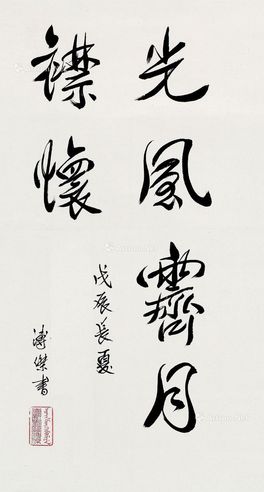 光風霽月
襟懷
戊辰長夏
溥傑書